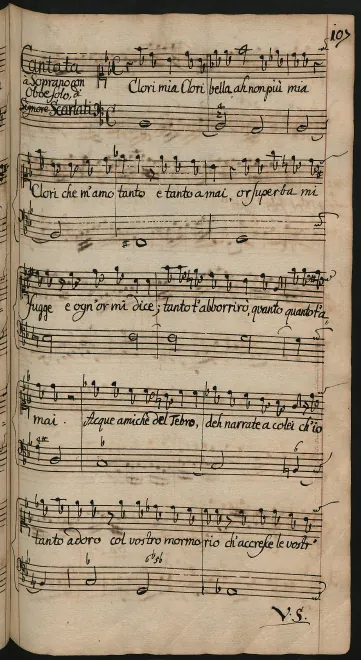 107
Cantata
à Soprano con
Oboe solo, di
Signore Scarlati
Clori mia Clori bella, ah non più mia
Clori che m'amo tanto e tanto amai, or superba mi
fugge e ogn'or mi dice; tanto t'abborrirò, quanto quanto t'a,
mai. Acque amiche del Tebro, deh narrate a colei ch'io
tanto adoro col vostro mormorio ch'accrese le vostr'
V. S.